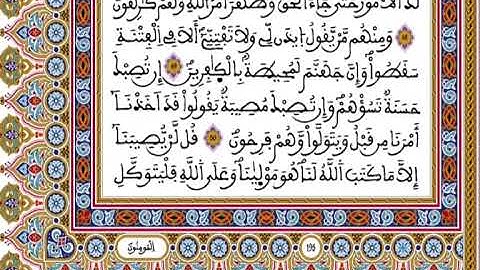 لَكَ اَلُامُورَ حَتَّىٰ جَآءَ اَلْحَقُّ وَظَهَرَ أَمْرُ اُللَّهِ وَهُمْ كَٰرِهُونَ
48 وَمِنْهُم مَّنْ يَّقُولُ اُيذَن لِّے وَلَا تَفْتِنِّےٓ أَلَا فِے اِلْفِتْنَةِ
سَقَطُواْ وَإِنَّ جَهَنَّمَ لَمُحِيطَةٌ بِالْكَٰفِرِينَ 49 إِن تُصِبْكَ
حَسَنَةٌ تَسُؤْهُمْ وَإِن تُصِبْكَ مُصِيبَةٌ يَقُولُواْ قَدَ اَخَذْنَآ
أَمْرَنَا مِن قَبْلُ وَيَتَوَلَّواْ وَّهُمْ فَرِحُونَ 50 قُل لَّنْ يُّصِيبَنَآ
إِلَّا مَا كَتَبَ اَللَّهُ لَنَا هُوَ مَوْلَيٰنَا وَعَلَى اَللَّهِ فَلْيَتَوَكَّلِ
اِلْمُومِنُونَ